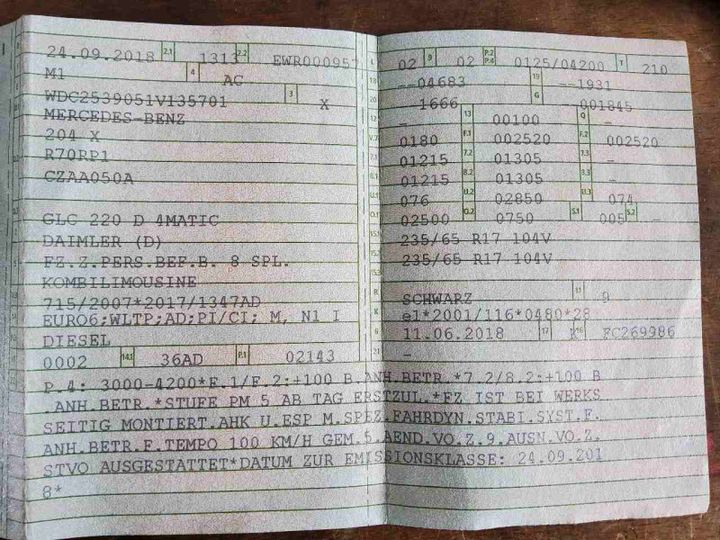 24.09.2018 2.1 1313 2.2 EWR000957
M1 4 AC
WDC2539051V135701 3 X
MERCEDES-BENZ
204 X
R70RP1
CZAA050A
GLC 220 D 4MATIC
DAIMLER (D)
FZ.Z.PERS.BEF.B. 8 SPL.
KOMBILIMOUSINE
715/2007*2017/1347AD
EURO6;WLTP;AD;PI/CI; M, N1 I
DIESEL
0002 14.1 36AD P.1 02143
L 02 9 02 P.2 P.4 0125/04200 T 210
18 --04683 19 --1931
20 -1666 G -001845
12 - 13 00100 Q -
V.7 0180 F.1 002520 F.2 002520
7.1 01215 7.2 01305 7.3 -
8.1 01215 8.2 01305 8.3 -
U.1 076 U.2 02850 U.3 074
O.1 02500 O.2 0750 S.1 005 S.2 -
15.1 235/65 R17 104V
15.2 235/65 R17 104V
15.3
R SCHWARZ 11 9
K e1*2001/116*0480*28
6 11.06.2018 17 K 16 FC269986
21 -
P.4: 3000-4200*F.1/F.2:+100 B.ANH.BETR.*7.2/8.2:+100 B
.ANH.BETR.*STUFE PM 5 AB TAG ERSTZUL.*FZ IST BEI WERKS
SEITIG MONTIERT.AHK U.ESP M.SPEZ.FAHRDYN.STABI.SYST.F.
ANH.BETR.F.TEMPO 100 KM/H GEM.5.AEND.VO.Z.9.AUSN.VO.Z.
STVO AUSGESTATTET*DATUM ZUR EMISSIONSKLASSE: 24.09.201
8*